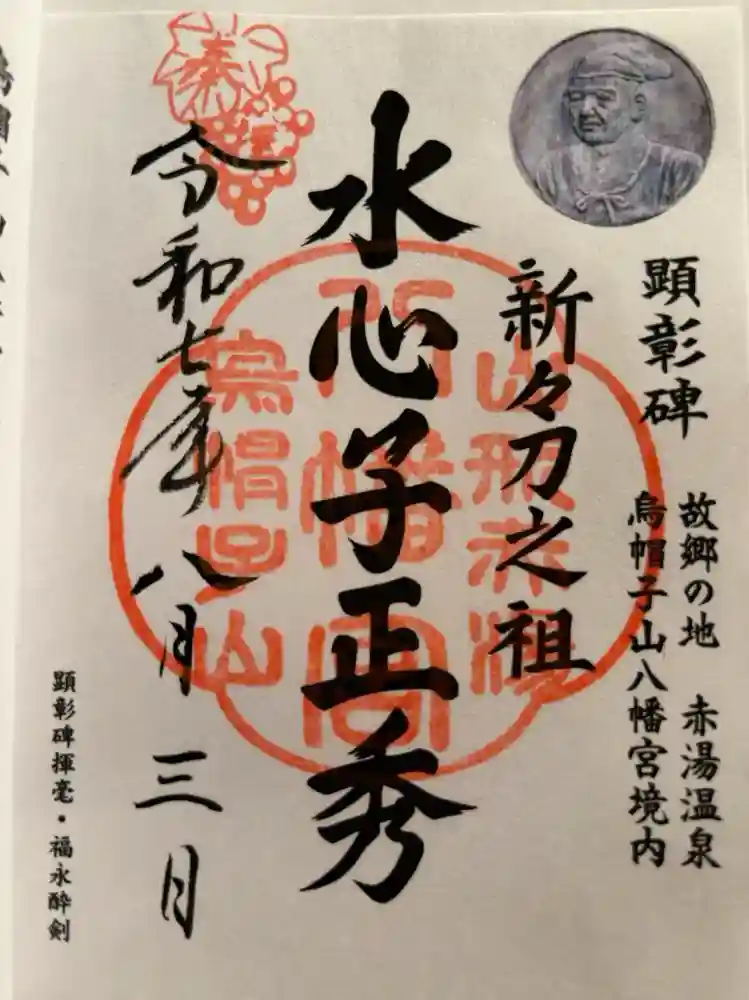 顕彰碑
故郷の地 赤湯温泉
烏帽子山八幡宮境内
新々刀之祖
水心子正秀
令和七年八月三日
顕彰碑揮毫・福永酔剣
山形赤湯
八幡宮
烏帽子山
奉